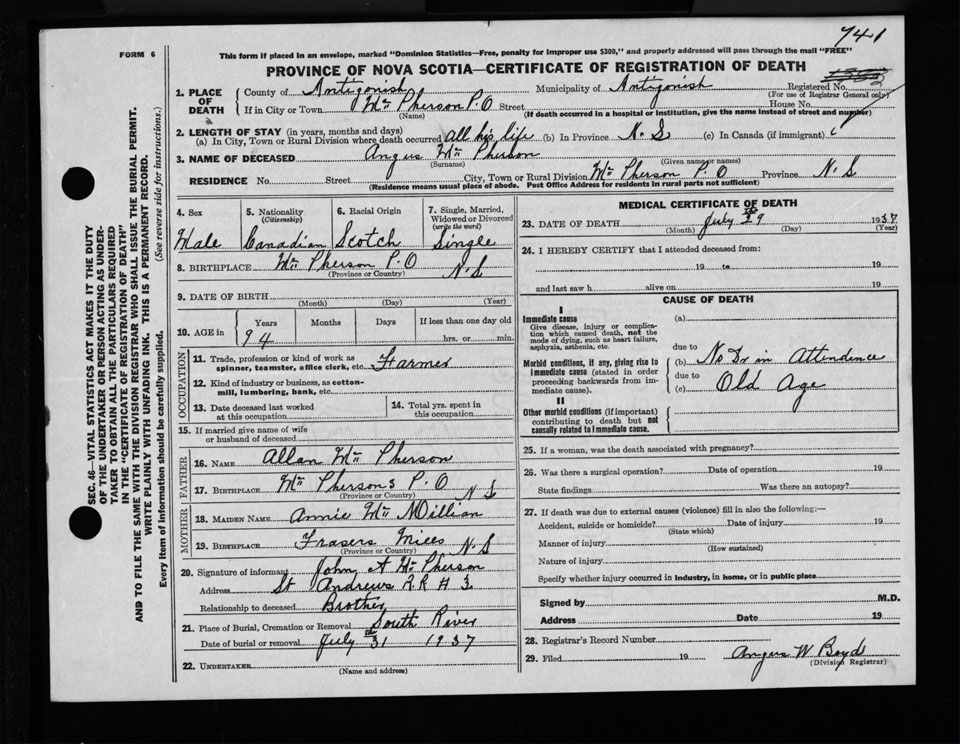 741
FORM 6
This form if placed in an envelope, marked "Dominion Statistics—Free, penalty for improper use $300," and properly addressed will pass through the mail "FREE"
PROVINCE OF NOVA SCOTIA—CERTIFICATE OF REGISTRATION OF DEATH
1. PLACE OF DEATH
County of Antigonish Municipality of Antigonish Registered No.
(For use of Registrar General only)
If in City or Town Mc Pherson P.O Street House No.
(Name) (If death occurred in a hospital or institution, give the name instead of street and number)
2. LENGTH OF STAY (in years, months and days)
(a) In City, Town or Rural Division where death occurred all his life (b) In Province N.S (c) In Canada (if immigrant)
3. NAME OF DECEASED Angus Mc Pherson
(Surname) (Given name or names)
RESIDENCE No. Street City, Town or Rural Division Mc Pherson P.O Province N.S
(Residence means usual place of abode. Post Office Address for residents in rural parts not sufficient)
4. Sex
Male
5. Nationality
(Citizenship)
Canadian
6. Racial Origin
Scotch
7. Single, Married, Widowed or Divorced
(write the word)
Single
8. BIRTHPLACE Mc Pherson P.O N.S
(Province or Country)
9. DATE OF BIRTH
(Month) (Day) (Year)
10. AGE in
Years Months Days If less than one day old
94 hrs. or min.
OCCUPATION
11. Trade, profession or kind of work as spinner, teamster, office clerk, etc. Farmer
12. Kind of industry or business, as cotton-mill, lumbering, bank, etc.
13. Date deceased last worked at this occupation
14. Total yrs. spent in this occupation
15. If married give name of wife or husband of deceased
FATHER
16. NAME Allan Mc Pherson
17. BIRTHPLACE Mc Phersons P.O N S
(Province or Country)
MOTHER
18. MAIDEN NAME Annie Mc Millian
19. BIRTHPLACE Frasers Mills N.S
(Province or Country)
20. Signature of informant John A Mc Pherson
Address St Andrews R.R # 3
Relationship to deceased Brother
21. Place of Burial, Cremation or Removal South River
Date of burial or removal July 31 1937
22. UNDERTAKER
(Name and address)
MEDICAL CERTIFICATE OF DEATH
23. DATE OF DEATH July 29th 1937
(Month) (Day) (Year)
24. I HEREBY CERTIFY that I attended deceased from:
19 to 19
and last saw h alive on 19
CAUSE OF DEATH
I
Immediate cause
Give disease, injury or complication which caused death, not the mode of dying, such as heart failure, asphyxia, asthenia, etc.
(a)
due to
Morbid conditions, if any, giving rise to immediate cause (stated in order proceeding backwards from immediate cause).
(b) No Dr in Attendence
due to
(c) Old Age
II
Other morbid conditions (if important) contributing to death but not causally related to immediate cause.
25. If a woman, was the death associated with pregnancy?
26. Was there a surgical operation? Date of operation 19
State findings Was there an autopsy?
27. If death was due to external causes (violence) fill in also the following:—
Accident, suicide or homicide? Date of injury 19
(State which)
Manner of injury
(How sustained)
Nature of injury
Specify whether injury occurred in industry, in home, or in public place
Signed by M.D.
Address Date 19
28. Registrar's Record Number
29. Filed 19 Angus W Boyd
(Division Registrar)
SEC. 46—VITAL STATISTICS ACT MAKES IT THE DUTY
OF THE UNDERTAKER OR PERSON ACTING AS UNDER-
TAKER TO OBTAIN ALL THE PARTICULARS REQUIRED
IN THE "CERTIFICATE OF REGISTRATION OF DEATH"
AND TO FILE THE SAME WITH THE DIVISION REGISTRAR WHO SHALL ISSUE THE BURIAL PERMIT.
WRITE PLAINLY WITH UNFADING INK. THIS IS A PERMANENT RECORD.
Every item of information should be carefully supplied. (See reverse side for instructions.)